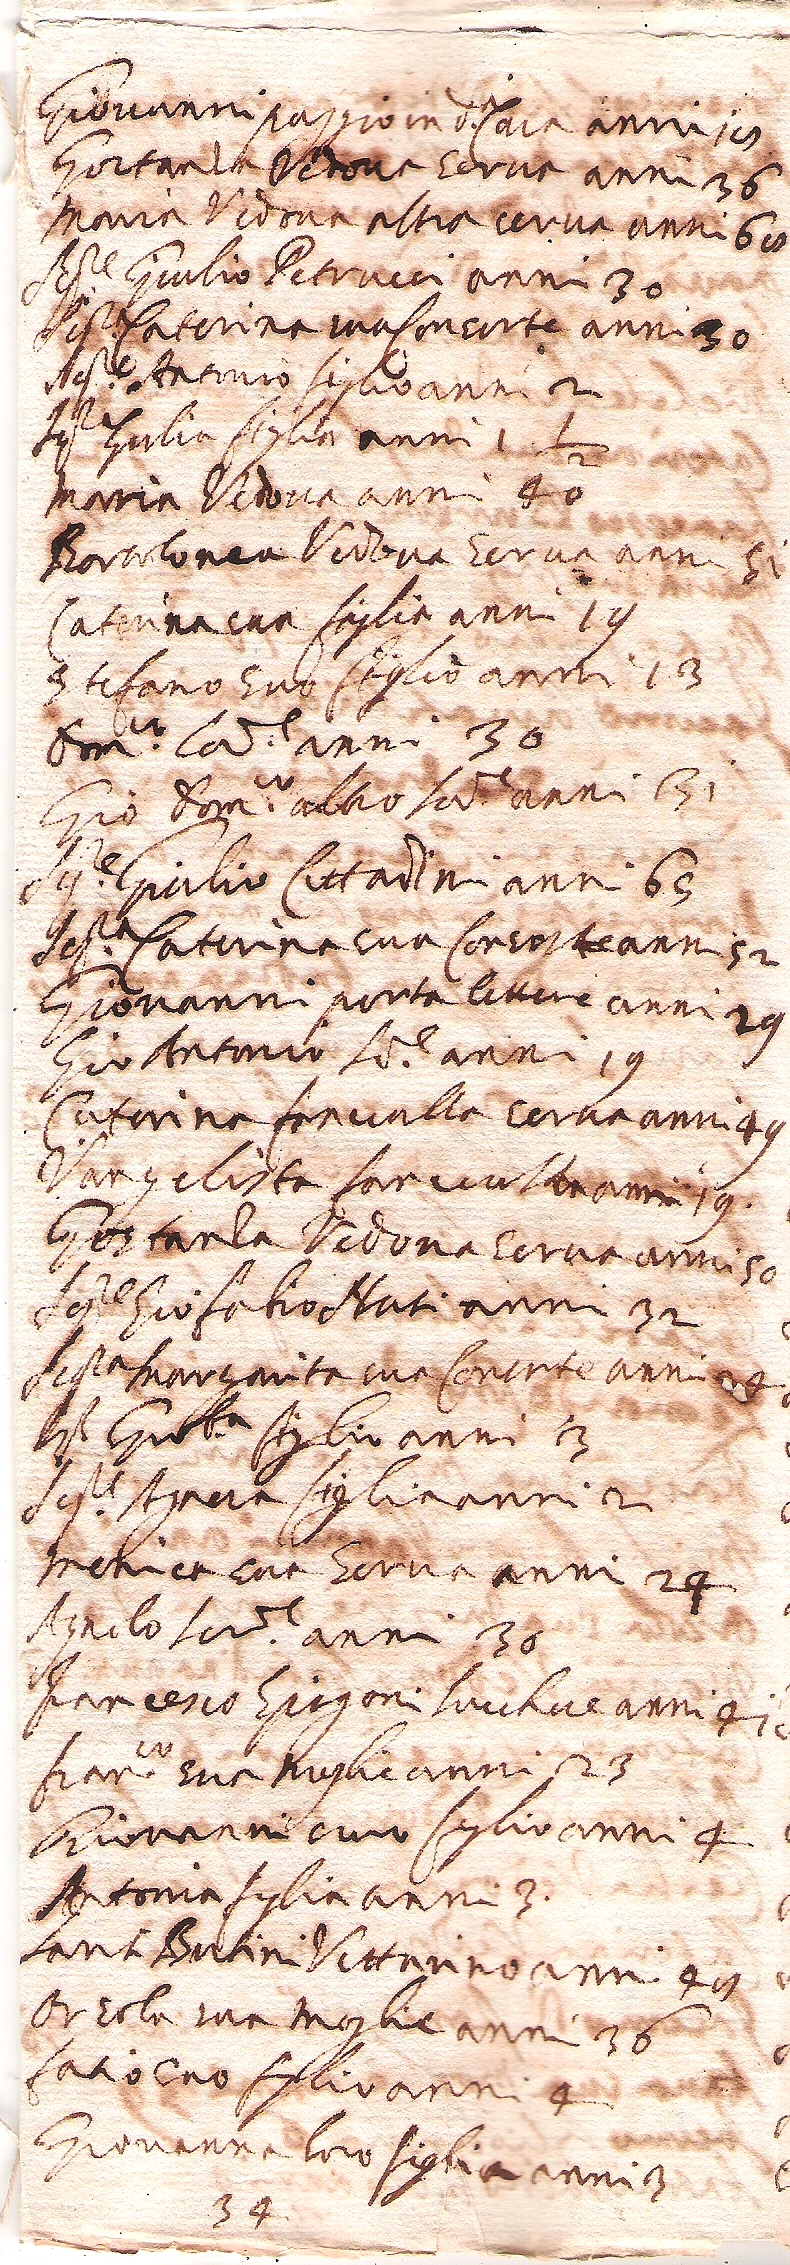 Giovanni paggio in d.a Casa anni 15
Gostanza Vedova Serva anni 36
Maria Vedova altra serva anni 65
Sig.re Giulio Petrucci anni 30
Sig.ra Caterina sua Consorte anni 30
Sig.re Antonio figlio anni 2
Sig.ra Giulia figlia anni 1 1/2
Maria Vedova anni 40
Bartolomea Vedova Serva anni 51
Caterina sua figlia anni 19
Stefano suo figlio anni 13
Dom.co Ser.e anni 30
Gio Dom.co altro Ser.e anni 31
Sig.re Giulio Cittadini anni 65
Sig.ra Caterina sua Consorte anni 52
Giovanni porta lettere anni 29
Gio Antonio anni 19
Caterina fanciulla serva anni 49
Vangelista fanciulla anni 19.
Gostanza Vedova serva anni 50
Sig.re Gio fabio Nuti anni 32
Sig.ra Margarita sua Consorte anni 24
Sig.re Gio Ba figlio anni 3
Sig.ra figlia anni 2
Menica sua Serva anni 24
Agnelo Ser.e anni 30
francesco anni
fran.ca sua moglie anni 23
Giovanni suo figlio anni 4
Antonia figlia anni 3.
Santi Vetturino anni 45
Orsola sua moglie anni 36
fatio suo figlio anni 4
Giovanna loro figlia anni 3
34